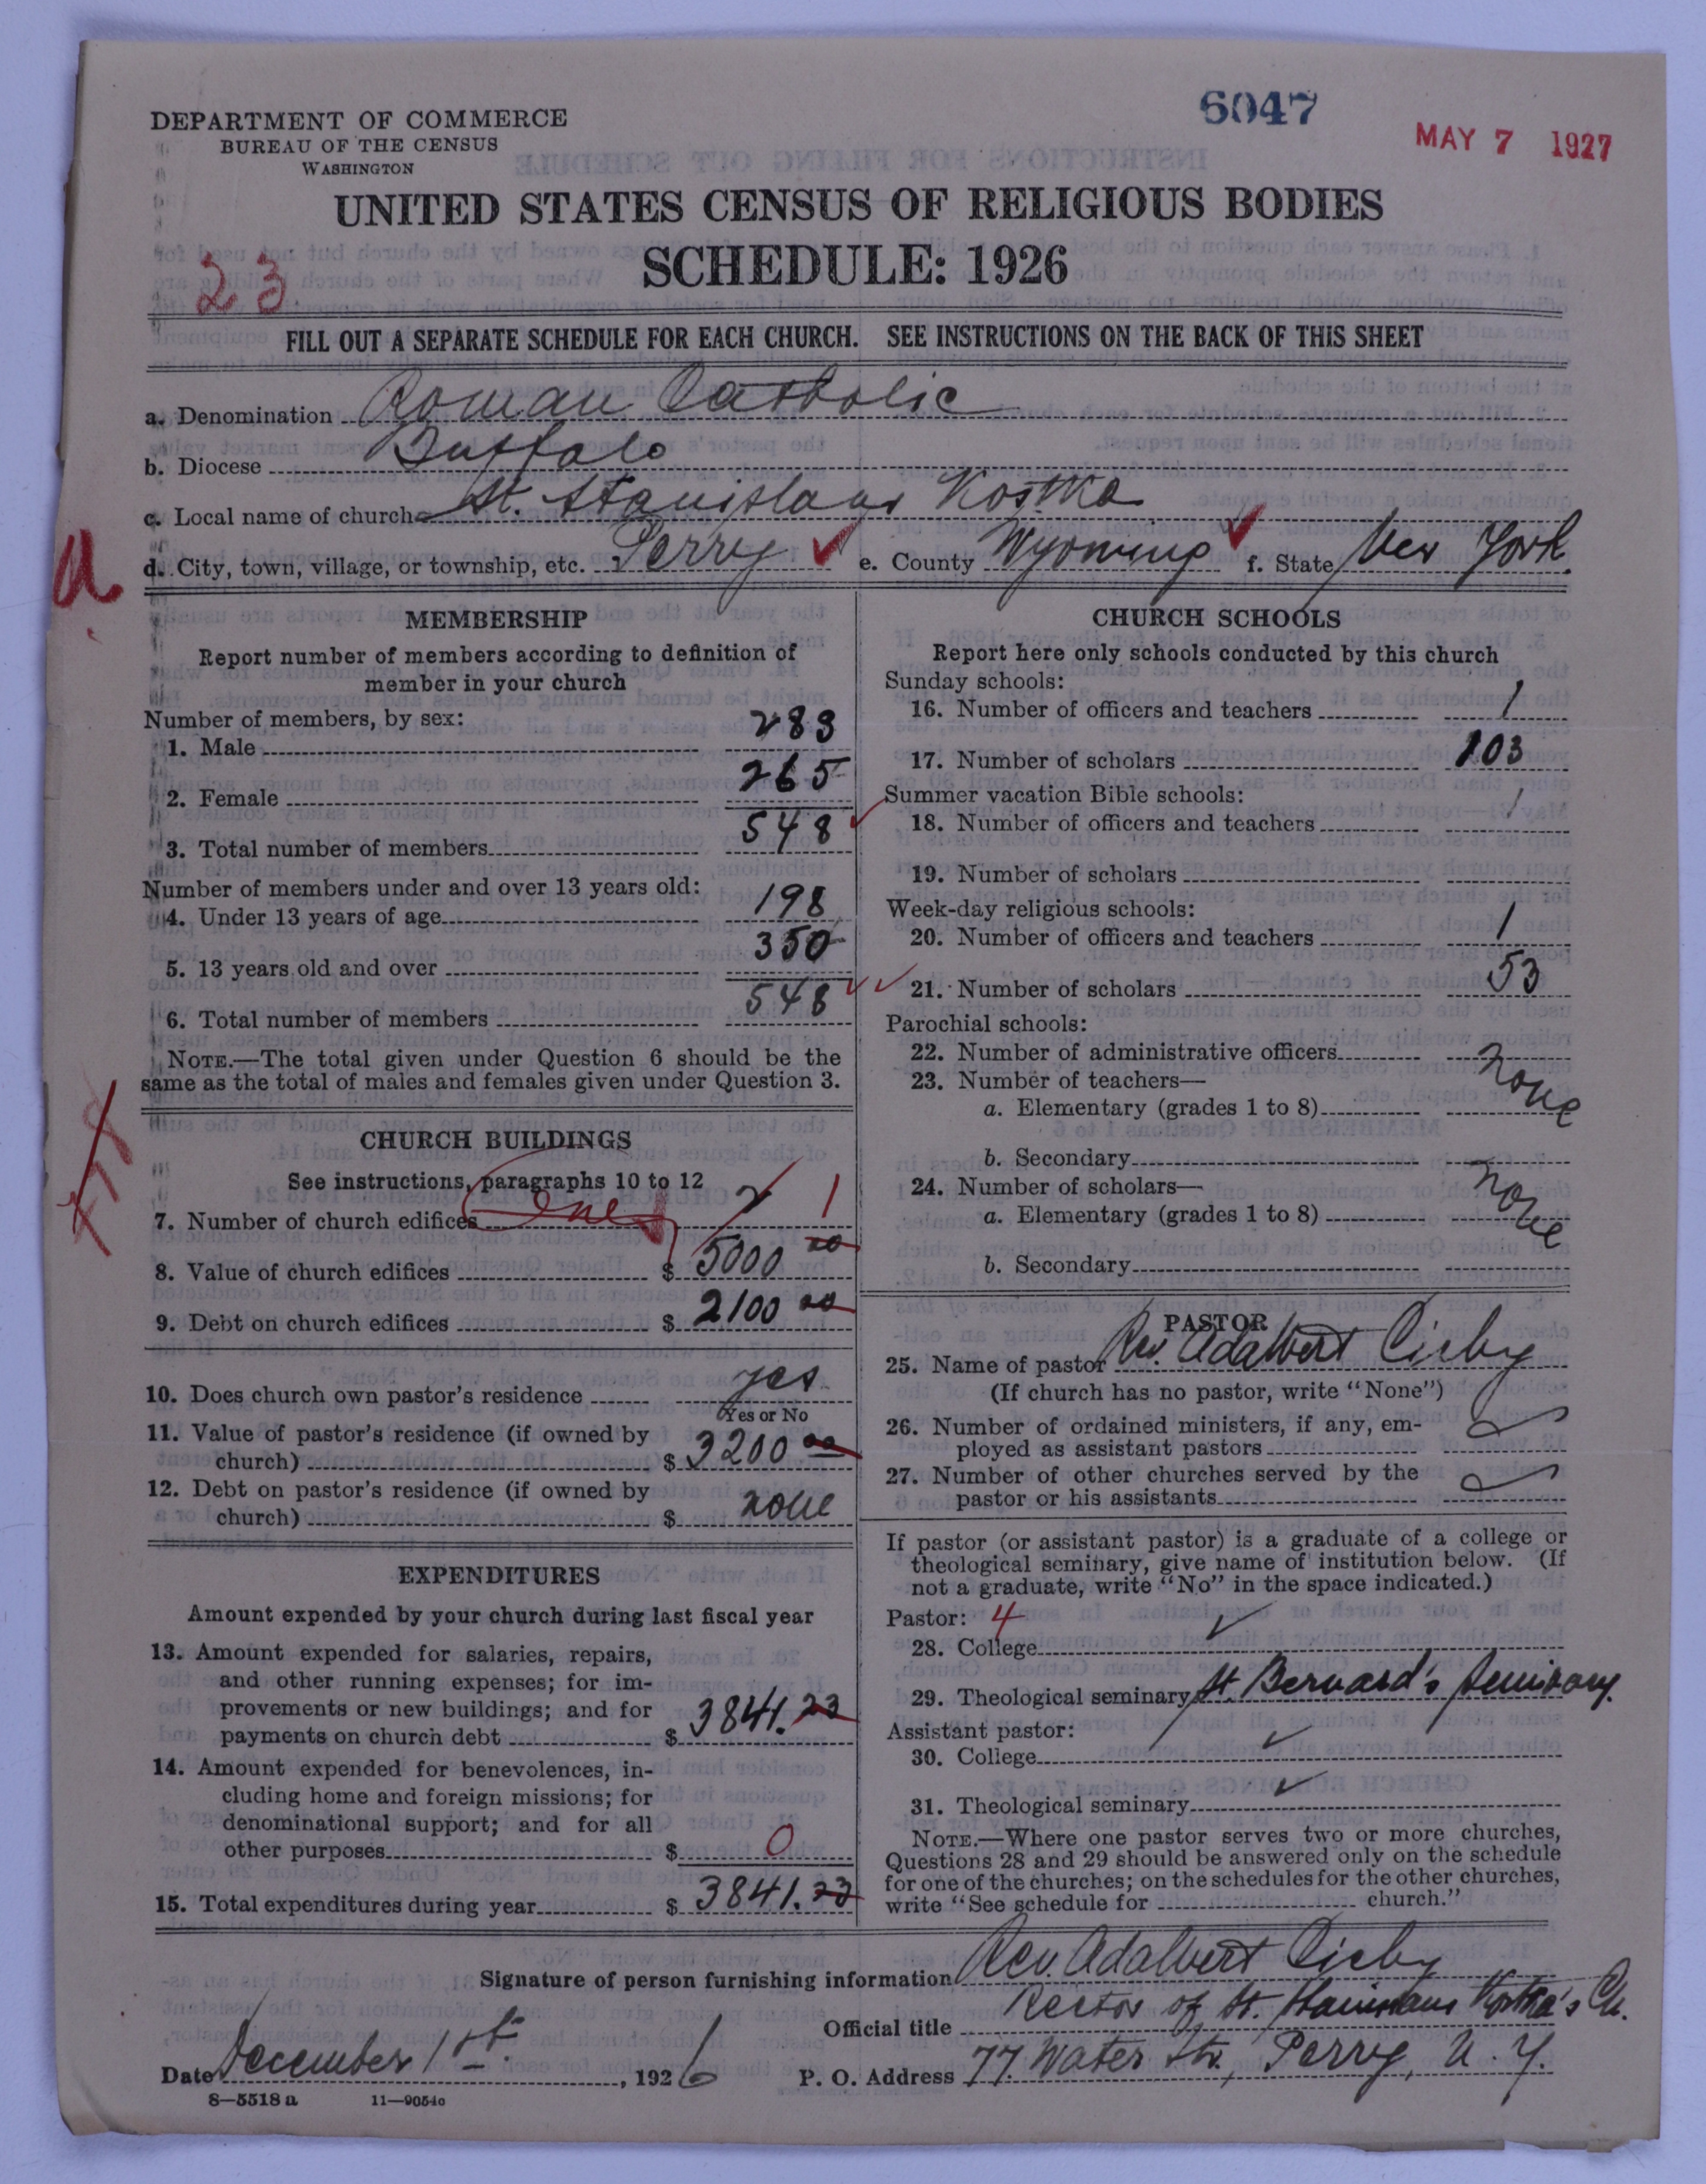 6047
MAY 7 1927
DEPARTMENT OF COMMERCE
BUREAU OF THE CENSUS
WASHINGTON
UNITED STATES CENSUS OF RELIGIOUS BODIES
SCHEDULE: 1926
23
FILL OUT A SEPARATE SCHEDULE FOR EACH CHURCH. SEE INSTRUCTIONS ON THE BACK OF THIS SHEET
a. Denomination Roman Catholic
b. Diocese Buffalo
c. Local name of church St. Stanislaus Kostka
d. City, town, village, or township, etc. Perry e. County Wyoming f. State New York.
a
MEMBERSHIP
Report number of members according to definition of
member in your church
Number of members, by sex:
1. Male 283
2. Female 265
3. Total number of members 548
Number of members under and over 13 years old:
4. Under 13 years of age 198
5. 13 years old and over 350
6. Total number of members 548
NOTE.—The total given under Question 6 should be the
same as the total of males and females given under Question 3.
CHURCH BUILDINGS
See instructions, paragraphs 10 to 12
7. Number of church edifices one 2 1
8. Value of church edifices $ 5000 00
9. Debt on church edifices $ 2100 00
10. Does church own pastor's residence yes
Yes or No
11. Value of pastor's residence (if owned by
church) $ 3200 00
12. Debt on pastor's residence (if owned by
church) $ none
EXPENDITURES
Amount expended by your church during last fiscal year
13. Amount expended for salaries, repairs,
and other running expenses; for im-
provements or new buildings; and for
payments on church debt $ 3841.23
14. Amount expended for benevolences, in-
cluding home and foreign missions; for
denominational support; and for all
other purposes $ 0
15. Total expenditures during year $ 3841.23
CHURCH SCHOOLS
Report here only schools conducted by this church
Sunday schools:
16. Number of officers and teachers 1
17. Number of scholars 103
Summer vacation Bible schools:
18. Number of officers and teachers /
19. Number of scholars
Week-day religious schools:
20. Number of officers and teachers 1
21. Number of scholars 53
Parochial schools:
22. Number of administrative officers none
23. Number of teachers—
a. Elementary (grades 1 to 8)
b. Secondary
24. Number of scholars— none
a. Elementary (grades 1 to 8)
b. Secondary
PASTOR
25. Name of pastor Rev. Adalbert Cichy
(If church has no pastor, write "None")
26. Number of ordained ministers, if any, em-
ployed as assistant pastors
27. Number of other churches served by the
pastor or his assistants
If pastor (or assistant pastor) is a graduate of a college or
theological seminary, give name of institution below. (If
not a graduate, write "No" in the space indicated.)
Pastor: 4
28. College
29. Theological seminary St. Bernard's Seminary.
Assistant pastor:
30. College
31. Theological seminary
NOTE.—Where one pastor serves two or more churches,
Questions 28 and 29 should be answered only on the schedule
for one of the churches; on the schedules for the other churches,
write "See schedule for church."
Signature of person furnishing information Rev. Adalbert Cichy
Official title Rector of St. Stanislaus Kostka's Ch.
Date December 1st. , 1926 P. O. Address 77 Water Str., Perry, N. Y.
8—5518 a 11—9054c